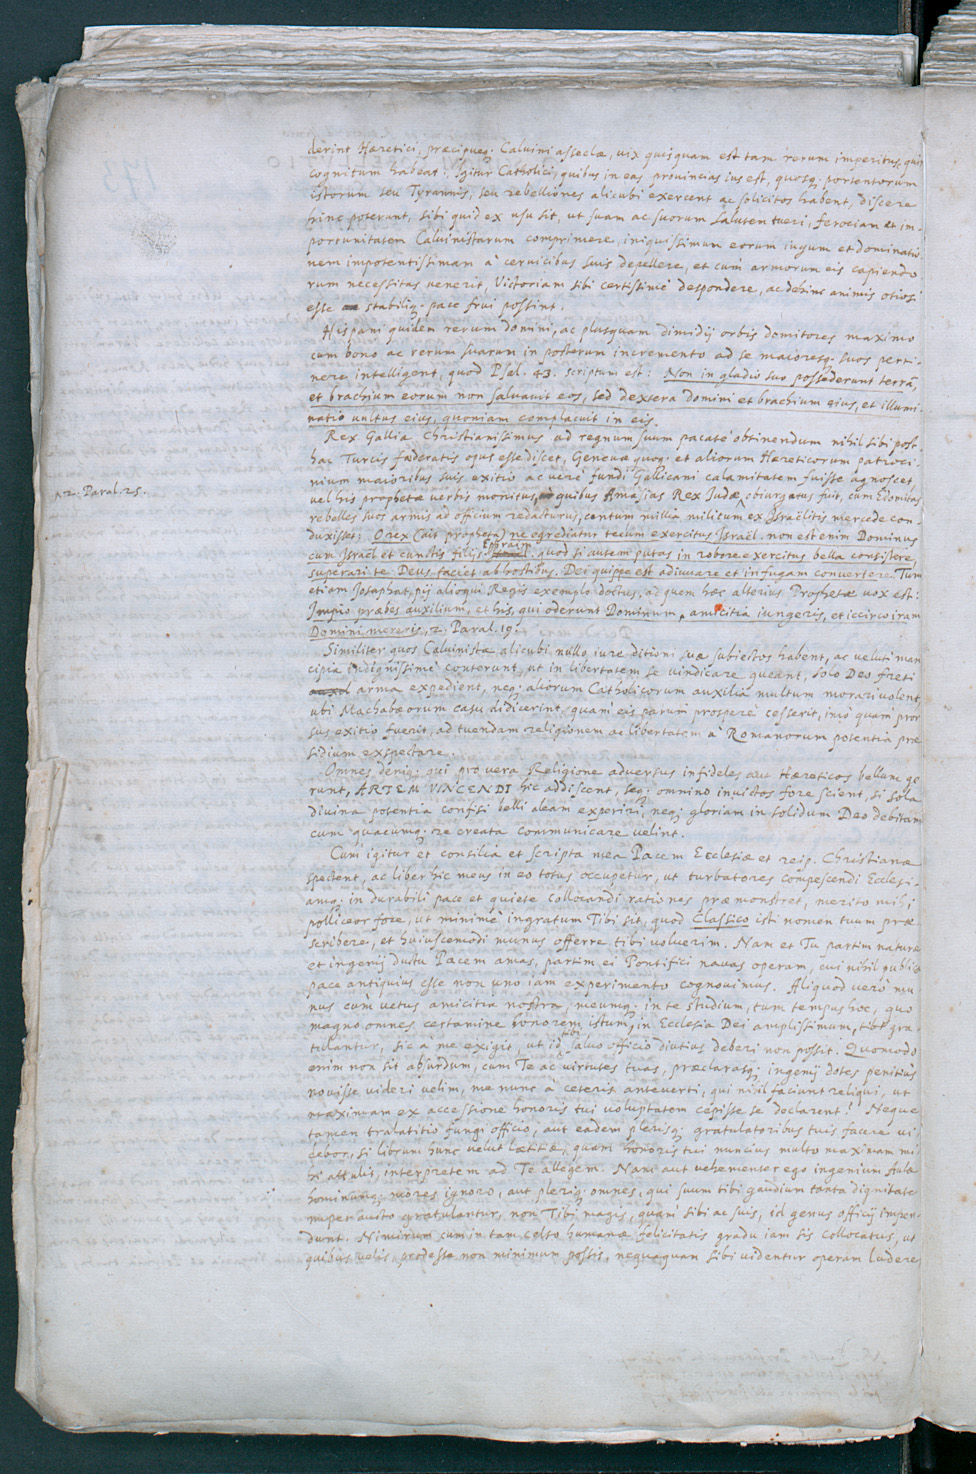 derint Hæretici, præcipueq; Caluini asseclæ, uix quisquam est tam rerum imperitus, quin
cognitum habeat: Igitur Catholici, quibus in eas prouincias ius est, quasq; portentorum
istorum seu Tyrannis, seu rebelliones alicubi exercent ac solicitos habent, discere
hinc poterunt, sibi quid ex usu sit, ut suam ac suorum salutem tueri, ferociam et im-
portunitatem Caluinistarum comprimere, iniquissimum eorum iugum et dominatio
nem impotentissimam à ceruicibus suis depellere, et cum armorum eis capiendo
rum necessitas uenerit, Victoriam sibi certissimè despondere, ac dehinc animis otiosi
esse stabiliq; pace frui possint.
Hispani quidem rerum domini, ac plusquam dimidij orbis domitores maximo
cum bono ac rerum suarum in posterum incremento ad se maioresq; suos perti-
nere intelligent, quod Psal. 43. scriptum est: Non in gladio suo possederunt terrã,
et brachium eorum non saluauit eos, sed dextera domini et brachium eius, et illumi-
natio uultus eius, quoniam complacuit in eis.
Rex Galliæ Christianissimus ad regnum suum pacatè obtinendum nihil sibi post
hac Turcis fæderatis opus esse discet, Geneuæ quoq; et aliorum Hæreticorum patroci-
nium maioribus suis exitio ac uerè fundi Gallicani calamitatem fuisse agnoscet,
uel his prophetæ uerbis monitus, quibus Amasias Rex Iudæ obiurgatus fuit, cum Edomitas
2. Paral. 25.
rebelles suos armis ad officium redacturus, centum millia militum ex Israëlitis mercede con-
duxisset: O rex (ait propheta) ne egrediatur tecum exercitus Israël. non est enim Dominus
cum Israël et cunctis filijs Ephraim. quod si autem putas in robore exercitus bella consistere,
superari te Deus faciet ab hostibus. Dei quippe est adiuuare et in fugam conuertere. Tum
etiam Iosaphat, pij alioqui Regis exemplo doctus, ad quem hæc alterius Prophetæ uox est:
Impio præbes auxilium, et his, qui oderunt Dominum, amicitia iungeris, et iccirco iram
Domini mereris. 2. Paral. 19.
Similiter quos Caluinistæ alicubi nullo iure ditioni suæ subiectos habent, ac ueluti man
cipia indignissimè conterunt, ut in libertatem se uindicare queant, solo Deo freti
arma expedient, neq; aliorum Catholicorum auxilia multum morari uolent,
ubi Machabæorum casu didicerint, quam eis parum prosperè cesserit, imò quàm pror
sus exitio fuerit, ad tuendam religionem ac libertatem à Romanorum potentia præ
sidium exspectare.
Omnes deniq; qui pro uera Religione aduersus infideles aut Hæreticos bellum ge
runt, ARTEM VINCENDI hic addiscent, seq; omnino inuictos fore scient, si sola
diuina potentia confisi belli aleam experiri, neq; gloriam in solidum Deo debitam
cum quacumq; re creata communicare uelint.
Cum igitur et consilia et scripta mea Pacem Ecclesiæ et reip. Christianæ
spectent, ac liber hic meus in eo totus occupetur, ut turbatores compescendi Ecclesi-
amq; in durabili pace et quiete collocandi rationes præmonstret, merito mihi
polliceor fore, ut minimè ingratum Tibi sit, quod Classico isti nomen tuum præ
scribere, et huiuscemodi munus offerre tibi uoluerim. Nam et Tu partim naturæ
et ingenij ductu Pacem amas, partim ei Pontifici nauas operam, cui nihil publica
pace antiquius esse non uno iam experimento cognouimus. Aliquod uerò mu
nus cum uetus amicitia nostra, meumq; in te studium, tum tempus hoc, quo
magno omnes certamine honorem istum, in Ecclesia Dei amplissimum, tibi gra-
tulantur, sic à me exigit, ut id saluo officio diutius deberi non possit. Quomodo
enim non sit absurdum, cum Te ac uirtutes tuas, præclarasq; ingenij dotes penitius
nouisse uideri uelim, me nunc à ceteris anteuerti, qui nihil faciunt reliqui, ut
maximam ex accessione honoris tui uoluptatem cepisse se declarent! Neque
tamen tralatitio fungi officio, aut eadem plerisq; gratulatoribus tuis facere ui,
debor, si librum hunc uelut lætitiæ, quam honoris tui nuncius multo maximam mi
hi attulit, interpretem ad Te allegem. Nam aut uehementer ego ingenium Aulæ
hominumq; mores ignoro, aut pleriq; omnes, qui suum tibi gaudium tanta dignitate
nuper aucto gratulantur, non Tibi magis, quàm sibi ac suis, id genus officij impen-
dunt. Nimirum cum in tam celso humanæ felicitatis gradu iam sis collocatus, ut
quibus uelis, prodesse non minimum possis, nequaquam sibi uidentur operam ludere